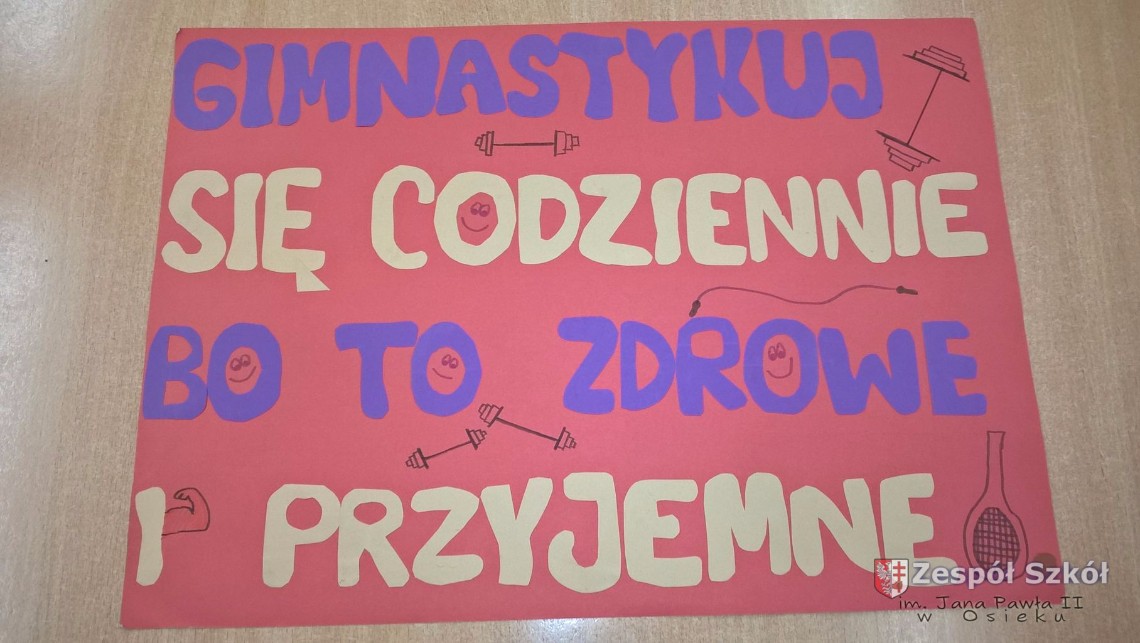 GIMNASTYKUJ
SIĘ CODZIENNIE
BO TO ZDROWE
I PRZYJEMNE
Zespół Szkół
im. Jana Pawła II
w Osieku